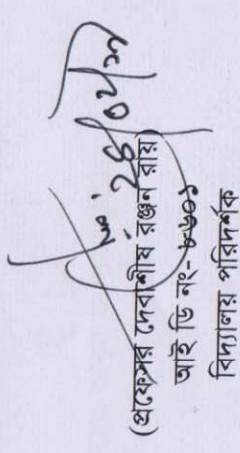 (প্রফেসর দেবাশীষ রঞ্জন রায়)
আই ডি নং-৮৬০১
বিদ্যালয় পরিদর্শক